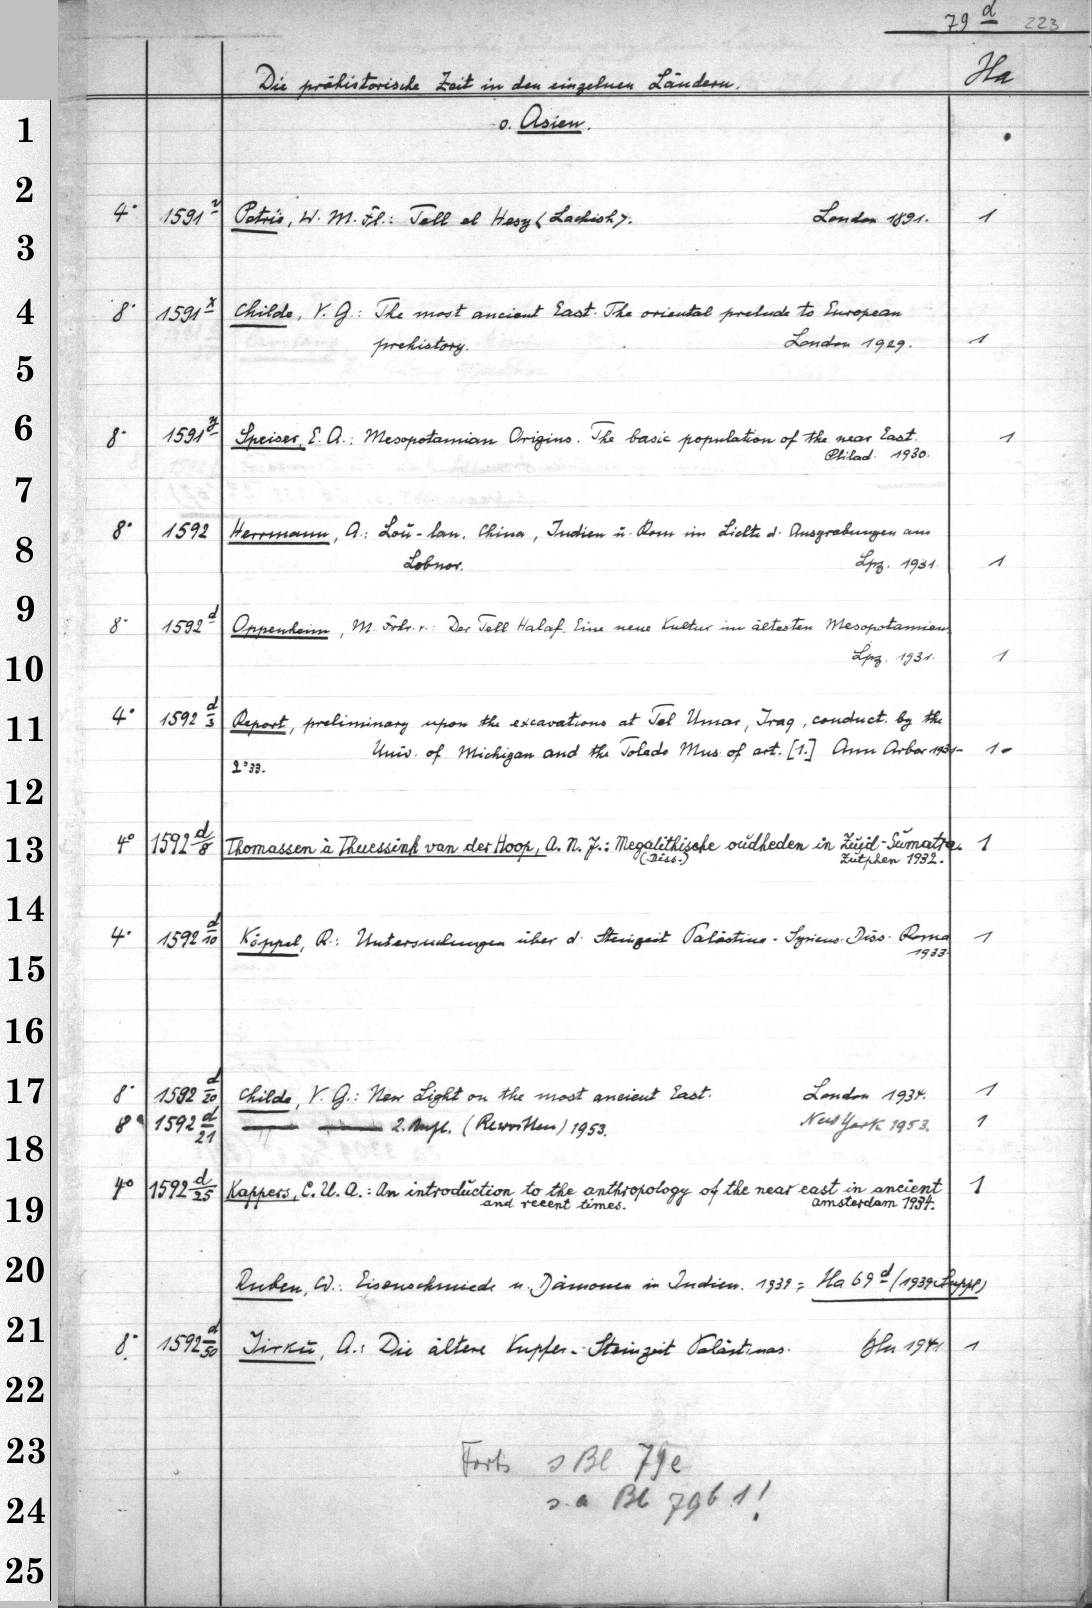 79 d 223
Die prähistorische Zeit in den einzelnen Ländern. Ha
o. Asien.
1
2
4° 1591 v Petrie, W. M. Fl.: Tell el Hesy (Lachish). London 1891. 1
3
4 8° 1591 x Childe, V. G.: The most ancient East. The oriental prelude to European
prehistory. London 1929. 1
5
6 8° 1591 y Speiser, E. A.: Mesopotamian Origins. The basic population of the near East. 1
Philad. 1930.
7
8° 1592 Herrmann, A.: Loŭ-lan. China, Indien ŭ. Rom im Lichte d. Ausgrabungen am
8 Lobnor. Lpz. 1931. 1
9
8° 1592 d Oppenheim, M. Frhr. v.: Der Tell Halaf. Eine neue Kultur im ältesten Mesopotamien.
10 Lpz. 1931. 1
11 4° 1592 d/3 Report, preliminary upon the excavations at Tel Umar, Iraq, conduct. by the
Univ. of Michigan and the Toledo Mus. of art. [1.] Ann Arbor 1931- 1
2°33.
12
13 4° 1592 d/8 Thomassen à Thuessink van der Hoop, A. N. J.: Megalithische oŭdheden in Zŭid-Sŭmatra. 1
(Diss.) Zŭtphen 1932.
14
4° 1592 d/10 Köppel, R.: Untersuchungen über d. Steinzeit Palästina-Syriens. Diss. Roma 1
1933.
15
16
17 8° 1592 d/20 Childe, V. G.: New Light on the most ancient East. London 1934. 1
8° 1592 d/21 — — 2. Aufl. (Rewritten) 1953. New York 1953. 1
18
4° 1592 d/25 Kappers, C. U. A.: An introdŭction to the anthropology of the near east in ancient 1
19 and recent times. Amsterdam 1934.
20 Ruben, W.: Eisenschmiede u. Dämonen in Indien. 1939 = Ha 69 d (1939 Suppl)
21 8° 1592 d/50 Jirkŭ, A.: Die ältere Kupfer-Steinzeit Palästinas. Bln 1941 1
22
23 Forts s Bl 79e
24 s. a Bl 79b 1!
25